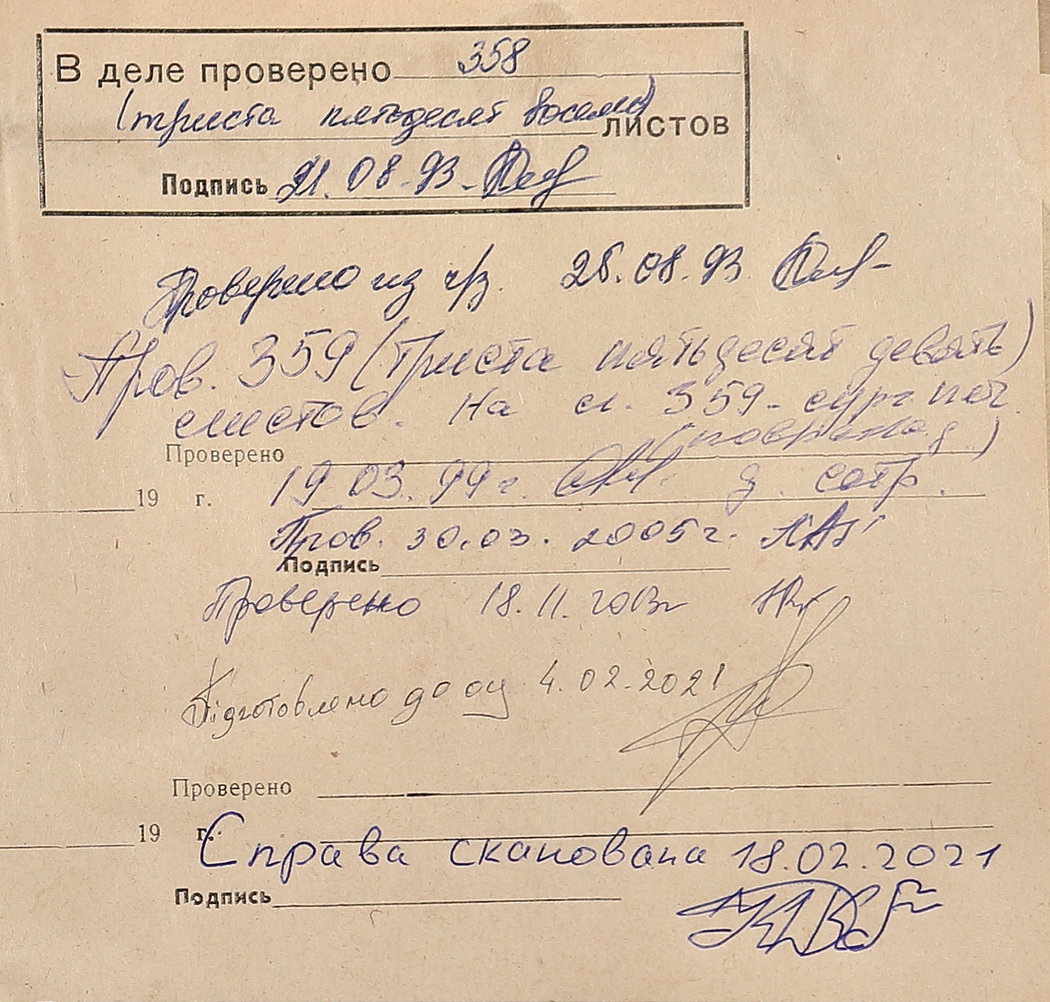 В деле проверено 358
(триста пятьдесят восемь) листов
Подпись 21.08.93.
Проверено из ч/з. 26.08.93
Пров. 359 (триста пятьдесят девять)
листов. На л. 359 - сург. печ.
(повреждена)
Проверено
19.03.99г. сотр.
19 г.
Пров. 30.03.2005г.
Подпись
Проверено 18.11.2013г
Підготовлено до оц 4.02.2021
Проверено
19 г.
Справа сканована 18.02.2021
Подпись